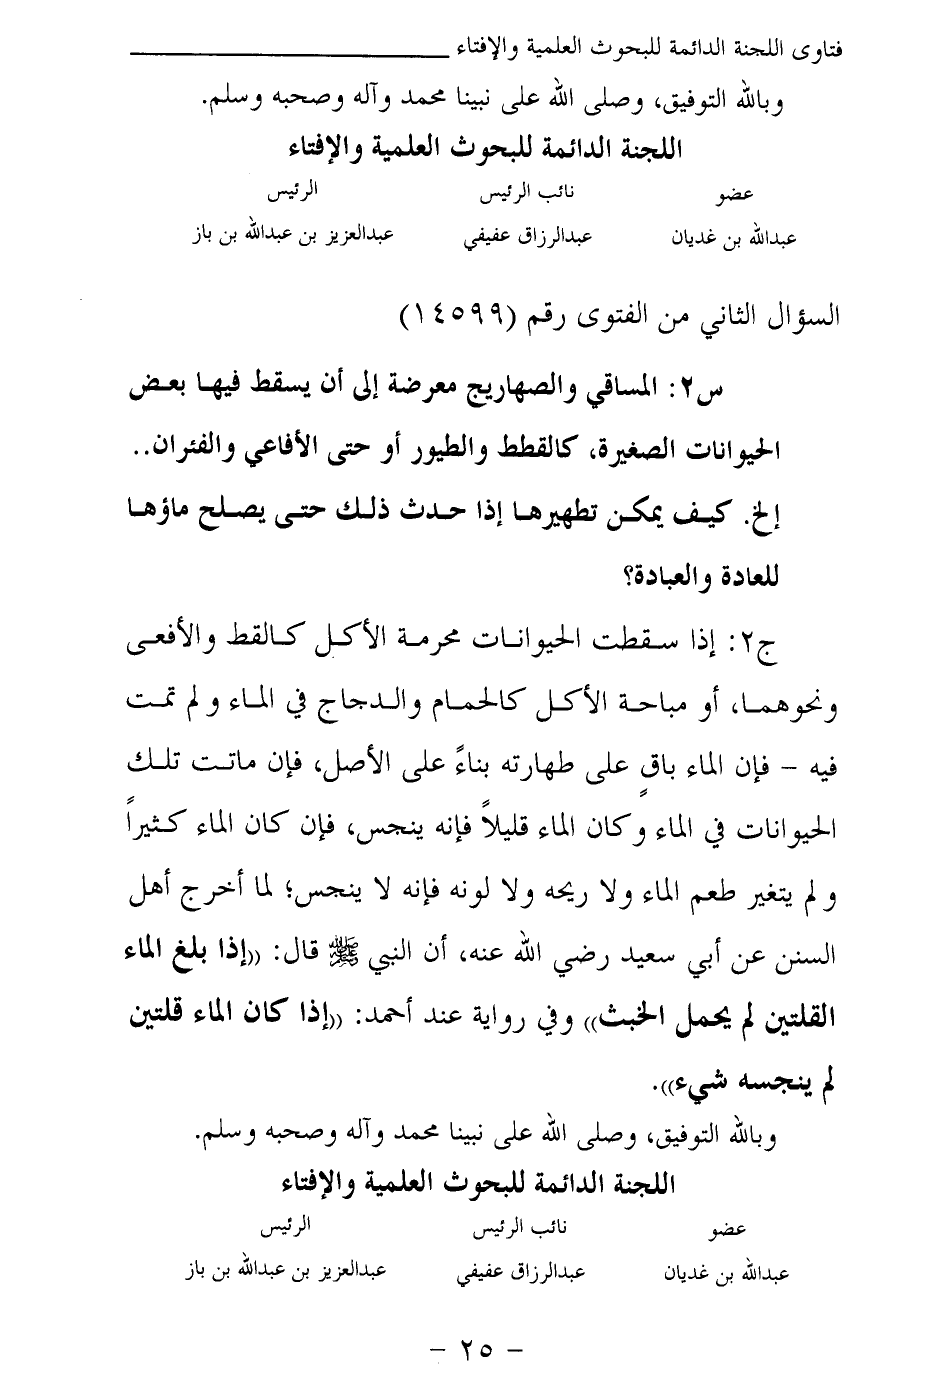 فتاوى اللجنة الدائمة للبحوث العلمية والإفتاء
وبالله التوفيق، وصلى الله على نبينا محمد وآله وصحبه وسلم.
اللجنة الدائمة للبحوث العلمية والإفتاء
عضو نائب الرئيس الرئيس
عبدالله بن غديان عبدالرزاق عفيفي عبدالعزيز بن عبدالله بن باز
السؤال الثاني من الفتوى رقم (١٤٥٩٩)
س٢: المساقي والصهاريج معرضة إلى أن يسقط فيها بعض
الحيوانات الصغيرة، كالقطط والطيور أو حتى الأفاعي والفئران..
إلخ. كيف يمكن تطهيرها إذا حدث ذلك حتى يصلح ماؤها
للعادة والعبادة؟
ج٢: إذا سقطت الحيوانات محرمة الأكل كالقط والأفعى
ونحوهما، أو مباحة الأكل كالحمام والدجاج في الماء ولم تمت
فيه – فإن الماء باقٍ على طهارته بناءً على الأصل، فإن ماتت تلك
الحيوانات في الماء وكان الماء قليلاً فإنه ينجس، فإن كان الماء كثيراً
ولم يتغير طعم الماء ولا ريحه ولا لونه فإنه لا ينجس؛ لما أخرج أهل
السنن عن أبي سعيد رضي الله عنه، أن النبي ﷺ قال: ((إذا بلغ الماء
القلتين لم يحمل الخبث)) وفي رواية عند أحمد: ((إذا كان الماء قلتين
لم ينجسه شيء)).
وبالله التوفيق، وصلى الله على نبينا محمد وآله وصحبه وسلم.
اللجنة الدائمة للبحوث العلمية والإفتاء
عضو نائب الرئيس الرئيس
عبدالله بن غديان عبدالرزاق عفيفي عبدالعزيز بن عبدالله بن باز
– ٢٥ –